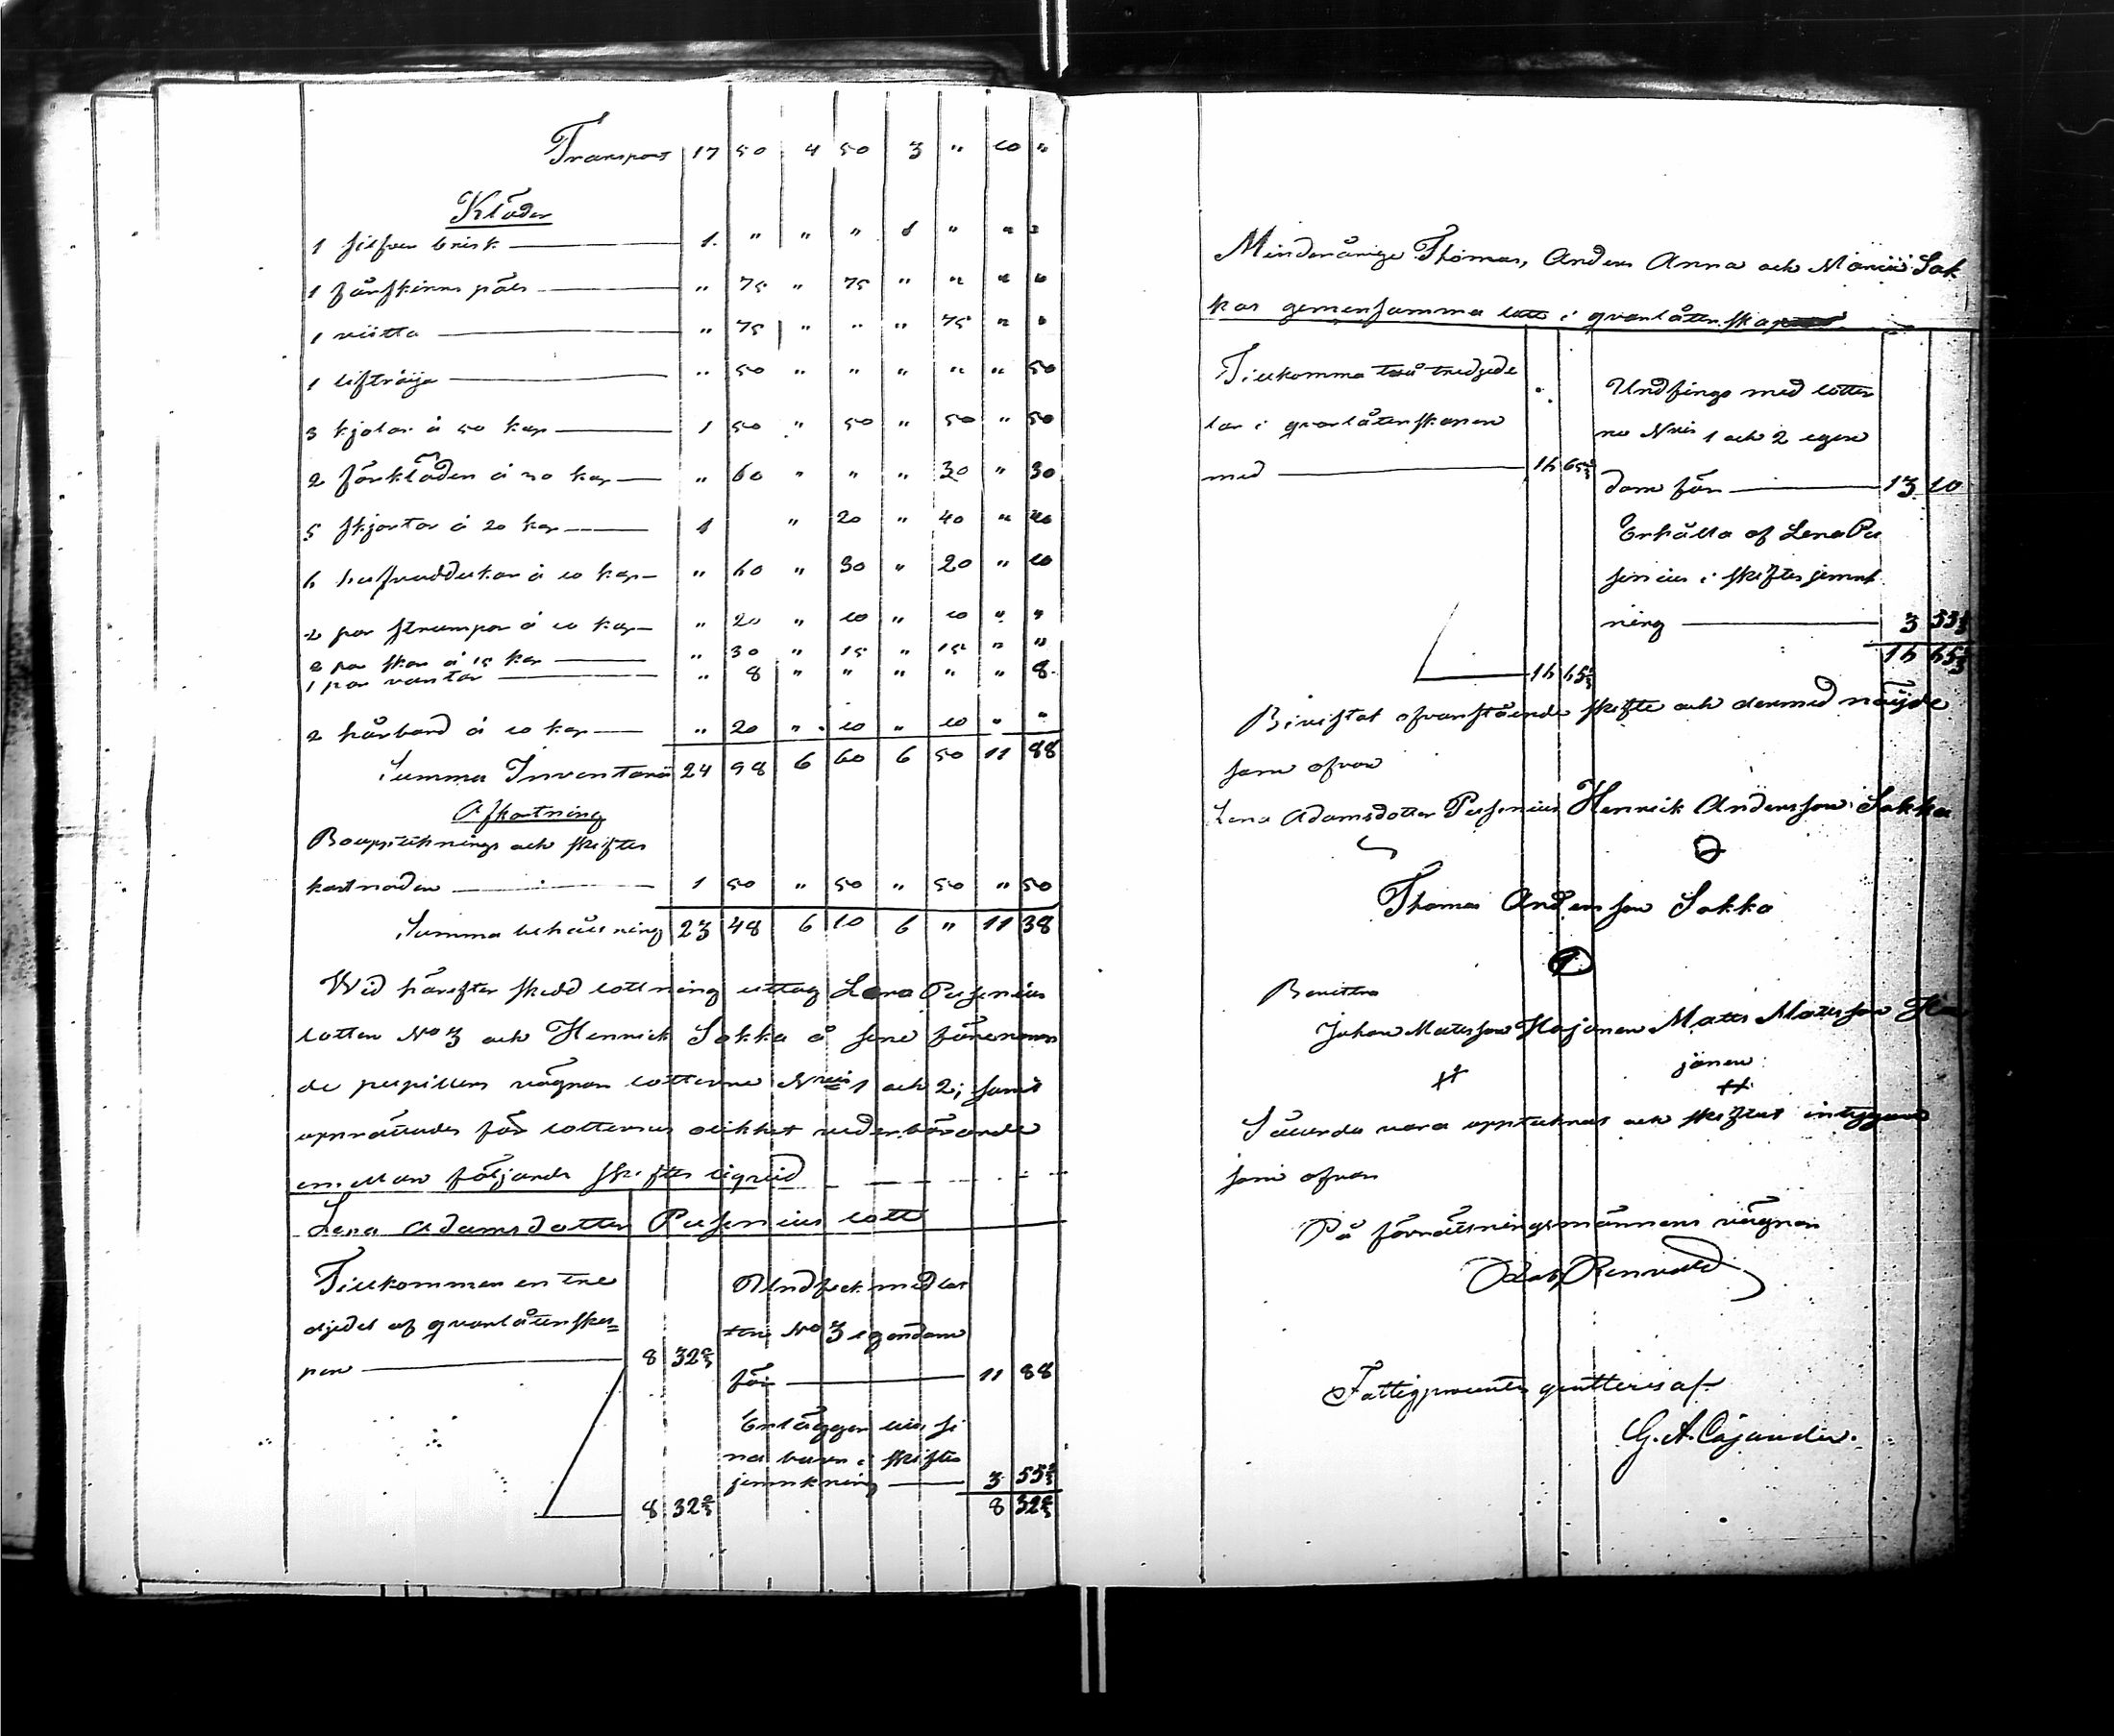 Transport 17 50 4 50 3 " 10 "
Kläder
1 silfver brisk — 1 " " " 1 " " "
1 fårskinns päls — " 75 " 75 " " " "
1 viitta — " 75 " " " 75 " "
1 liftröija — " 50 " " " " " 50
3 kjolar á 50 kop — 1 50 " 50 " 50 " 50
2 förkläden á 30 kop — " 60 " " " 30 " 30
5 skjortor á 20 kop — 1 " 20 " 40 " 40
6 hufvuddukar á 10 kop — " 60 " 30 " 20 " 10
2 par strumpor á 10 kop — " 20 " 10 " 10 " "
2 par skor á 15 kop — " 30 " 15 " 15 " "
1 par vantar — " 8 " " " " " 8
2 hårband á 10 kop — " 20 " 10 " 10 " "
Summa Inventarii 24 98 6 60 6 50 11 88
Afkortning
Bouppteknings och skiftes
kostnaden — 1 50 " 50 " 50 " 50
Summa behållning 23 48 6 10 6 " 11 38
Wid härefter skedd lottning uttog Lena Pusenius
lotten No 3 och Henrick Sokka å sine förenämn
de pupillers vägnar lotterne N:ris 1 och 2; samt
upprättades för lotternas olikhet vederbörande
emellan följande skiftes liqvid
Lena Adamsdotter Pusenius lott
Tillkommer en tre
djedel af qvarlåtenska=
pen — 8 32 2/3
8 32 2/3
Undfick med lot
ten No 3 egendom
för — 11 88
Erlägger till si
na barn i skiftes
jemnkning — 3 55 1/3
8 32 2/3
Minderårige Thomas, Anders Anna och Maria Sok
kas gemensamma lott i qvarlåtenskapen
Tillkomma två tredjede
lar i qvarlåtenskapen
med — 16 65 1/3
16 65 1/3
Undfingo med lotter
na N:ris 1 och 2 egen
dom för — 13 10
Erhålla af Lena Pu
senius i skiftes jemnk
ning — 3 55 1/3
16 65 1/3
Bivistat ofvanstående skifte och dermed nöijde
som ofvan
Lena Adamsdotter Pusenius Henrick Andersson Sokka
Thomas Andersson Sokka
Bevittna
Johan Matsson Hajonen Matts Matsson Ha
jonen
Sålunda vara upptecknat och skiftat intygar
som ofvan
På förrättningsmännens vägnar
Renvald
Fattigprocenten qvitteras af
G. A. Cajander.